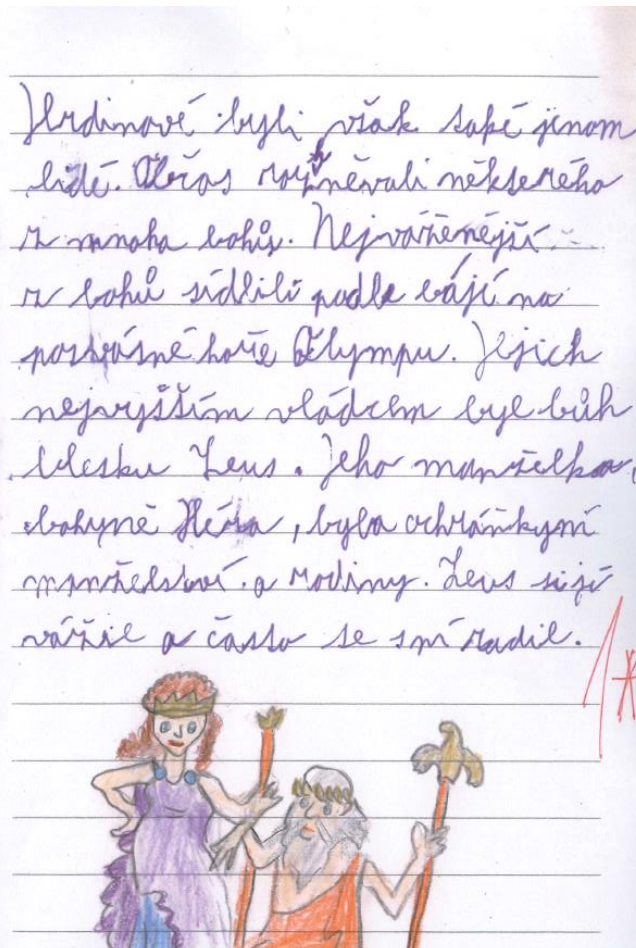 Hrdinové byli však také jenom
lidé. Občas rozhněvali některého
z mnoha bohů. Nejváženější
z bohů sídlili podle bájí na
posvátné hoře Olympu. Jejich
nejvyšším vládcem byl bůh
blesku Zeus. Jeho manželka,
bohyně Héra, byla ochránkyní
manželství a rodiny. Zeus si jí
vážil a často se s ní radil.
1*